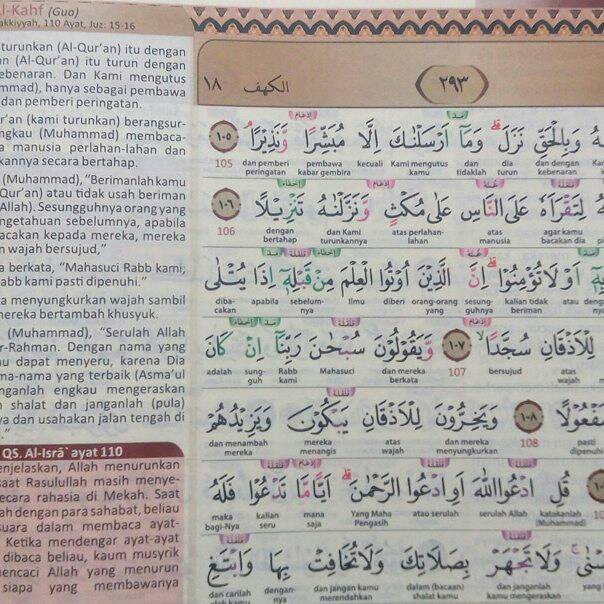 Al-Kahf (Gua)
akkiyyah, 110 Ayat, Juz: 15-16
turunkan (Al-Qur'an) itu dengan
n (Al-Qur'an) itu turun dengan
ebenaran. Dan Kami mengutus
mmad), hanya sebagai pembawa
dan pemberi peringatan.
ur'an (kami turunkan) berangsur-
ngkau (Muhammad) membaca-
a manusia perlahan-lahan dan
kannya secara bertahap.
(Muhammad), "Berimanlah kamu
Qur'an) atau tidak usah beriman
Allah). Sesungguhnya orang yang
ngetahuan sebelumnya, apabila
acakan kepada mereka, mereka
n wajah bersujud,"
a berkata, "Mahasuci Rabb kami;
abb kami pasti dipenuhi."
a menyungkurkan wajah sambil
mereka bertambah khusyuk.
(Muhammad), "Serulah Allah
r-Rahman. Dengan nama yang
u dapat menyeru, karena Dia
ma-nama yang terbaik (Asma'ul
anganlah engkau mengeraskan
shalat dan janganlah (pula)
ya dan usahakan jalan tengah di
QS. Al-Isrā` ayat 110
enjelaskan, Allah menurunkan
saat Rasulullah masih menye-
ecara rahasia di Mekah. Saat
ah dengan para sahabat, beliau
suara dalam membaca ayat-
Ketika mendengar ayat-ayat
dibaca beliau, kaum musyrik
encaci Allah yang menurun
siapa yang membawanya
٢٩٣ الكهف ١٨
وَبِالْحَقِّ نَزَلَ ۗ وَمَآ اَرْسَلْنٰكَ اِلَّا مُبَشِّرًا وَّنَذِيْرًا ۘ ١٠٥
dan dengan kebenaran dia turun dan tidaklah Kami mengutus kamu kecuali pembawa kabar gembira dan pemberi peringatan 105
لِتَقْرَاَهٗ عَلَى النَّاسِ عَلٰى مُكْثٍ وَّنَزَّلْنٰهُ تَنْزِيْلًا ١٠٦
agar kamu bacakan dia manusia atas atas perlahan-lahan dan Kami turunkannya dengan bertahap 106
اَوْ لَا تُؤْمِنُوْا ۗ اِنَّ الَّذِيْنَ اُوْتُوا الْعِلْمَ مِنْ قَبْلِهٖٓ اِذَا يُتْلٰى
atau kalian tidak beriman sesungguhnya orang-orang yang diberi ilmu sebelumnya apabila dibacakan
لِلْاَذْقَانِ سُجَّدًا ۙ ١٠٧ وَّيَقُوْلُوْنَ سُبْحٰنَ رَبِّنَآ اِنْ كَانَ
atas wajah bersujud 107 dan mereka berkata Mahasuci Rabb kami sungguh adalah
مَفْعُوْلًا ١٠٨ وَيَخِرُّوْنَ لِلْاَذْقَانِ يَبْكُوْنَ وَيَزِيْدُهُمْ
pasti dipenuhi 108 dan mereka menyungkurkan atas wajah mereka menangis dan menambah mereka
قُلِ ادْعُوا اللّٰهَ اَوِ ادْعُوا الرَّحْمٰنَ ۗ اَيًّا مَّا تَدْعُوْا فَلَهُ
katakanlah (Muhammad) serulah Allah atau serulah Yang Maha Pengasih mana saja kalian seru maka bagi-Nya
وَلَا تَجْهَرْ بِصَلَاتِكَ وَلَا تُخَافِتْ بِهَا وَابْتَغِ
dan janganlah kamu mengeraskan dalam (bacaan) shalatmu dan jangan kamu merendahkan dengannya dan carilah